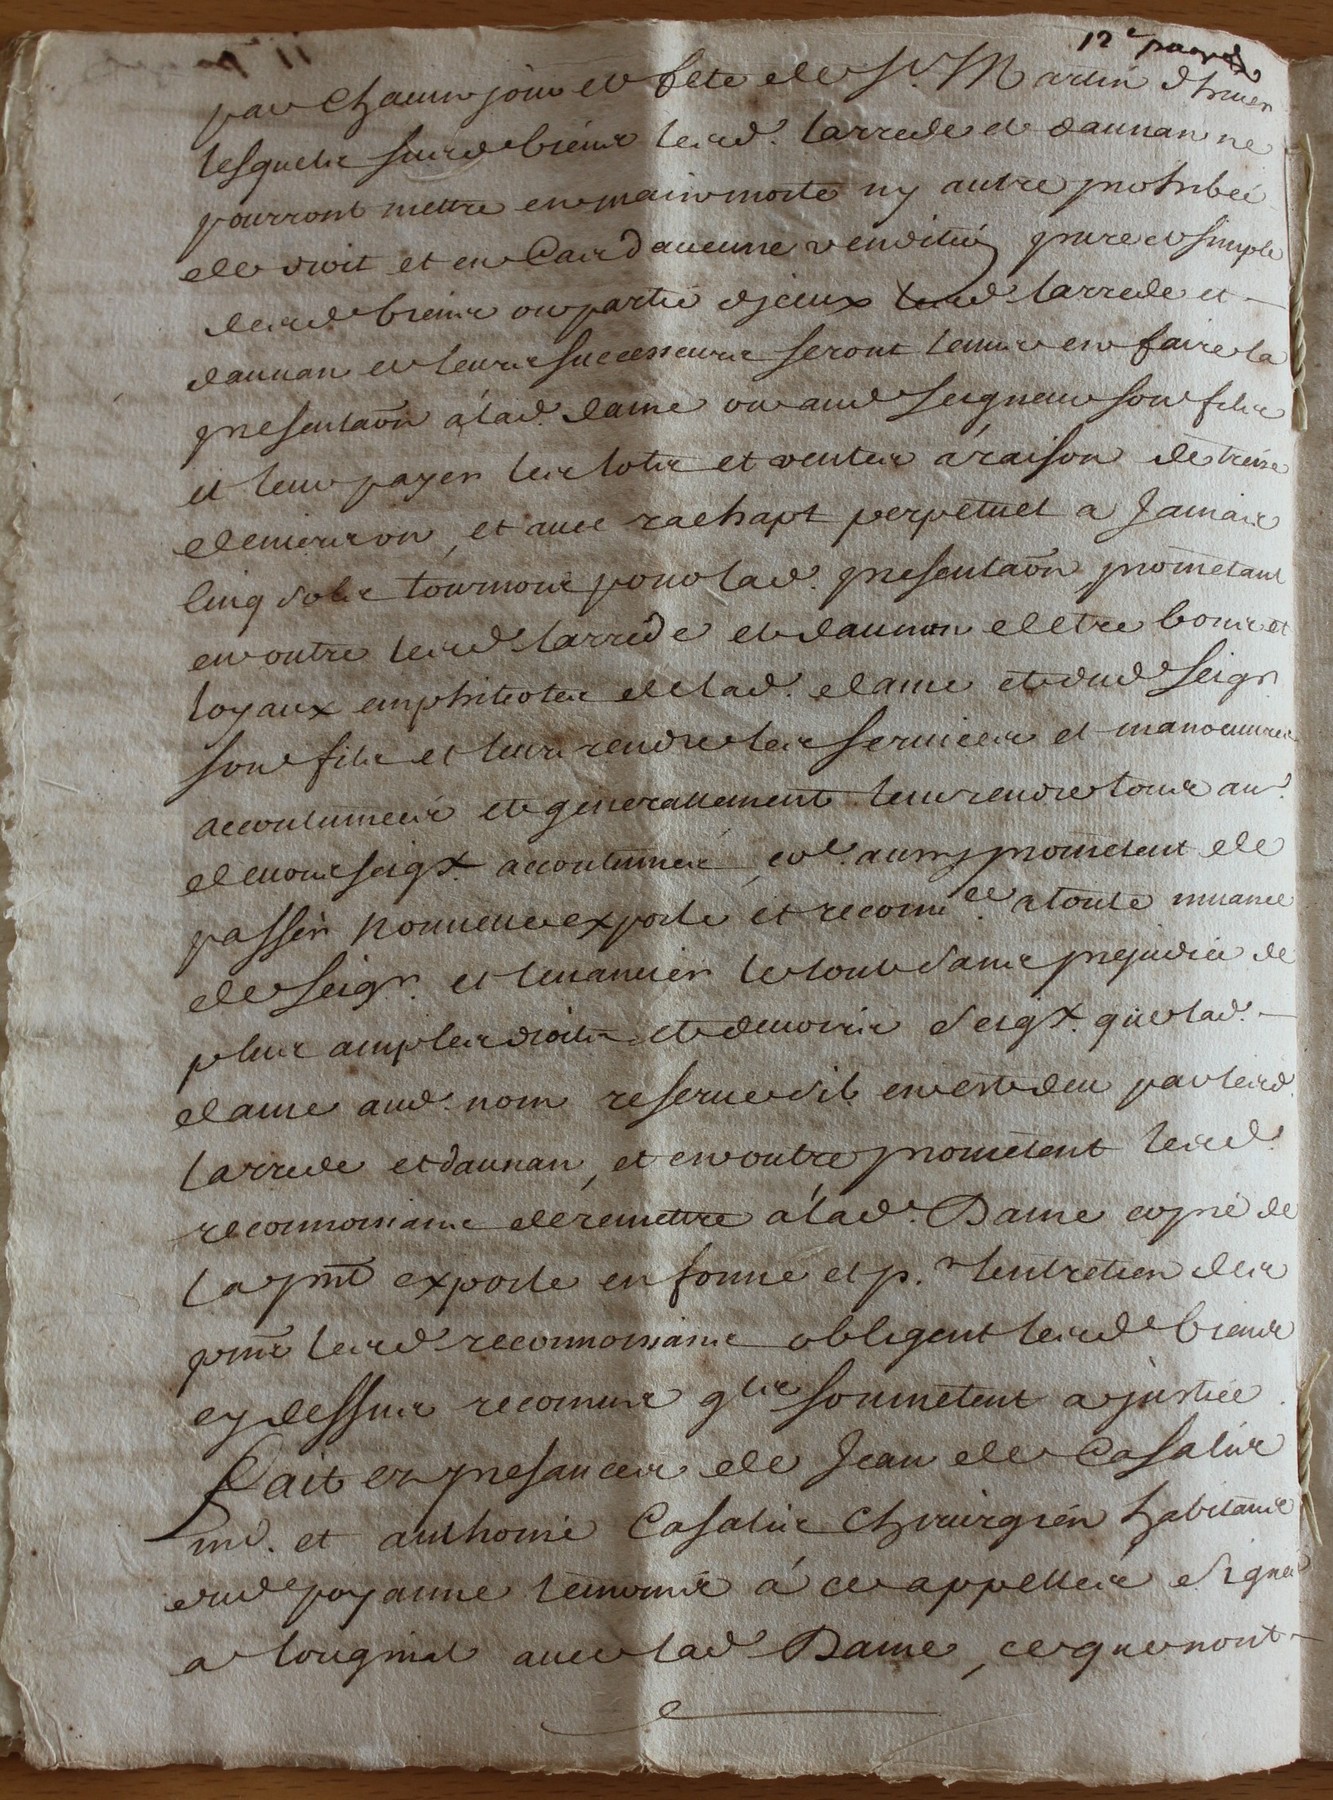 12e page
par chacun jour et fete de St. Martin dhiver
lesquels susd biens lesd. Larrede et daunan ne
pourront mettre en main morte ny autre prohibée
de droit et en cas daucune vendition pure et simple
desd biens ou partie djceux lesd Larrede et
daunan et leurs successeurs seront tenus en faire la
presentaõn a lad. dame ou aud Seigneur son fils
et leur payer les lots et ventes á raison de treize
deniers un, et avec rachapt perpetuel a Jamais
Cinq sols tournois pour lad. presentaõn promêtant
en outre lesd Larrede et daunan dêtre bons et
loyaux emphiteotes de lad. dame et dud Seigr.
son fils et leurs rendre les services et manoeuvres
accoutumées et generallement leur rendre tous au.
devoirs seigx. accoutumés, coe. aussy promêtent de
passér nouvelle exporle et reconnce. a toute muance
de seigr. et tenancier le tout sans prejudice de
plus amples droits et devoirs seigx. que lad.
dame aud. nom reserve s'il en est deu par lesd.
Larrede et daunan, et en outre promêtent lesd.
reconnoissans de remettre a lad. Dame copie de
la pnte exporle en forme et p.r lentretien des
pntes lesd reconnoissans obligent lesd biens
cy dessus reconnus qls soumêtent a justice.
Fait ez presances de Jean de Casalis
md. et anthoine Casalis chirurgien habitans
dud poyanne temoins á ce appellés signés
a loriginal avec lad Dame, ce que nont